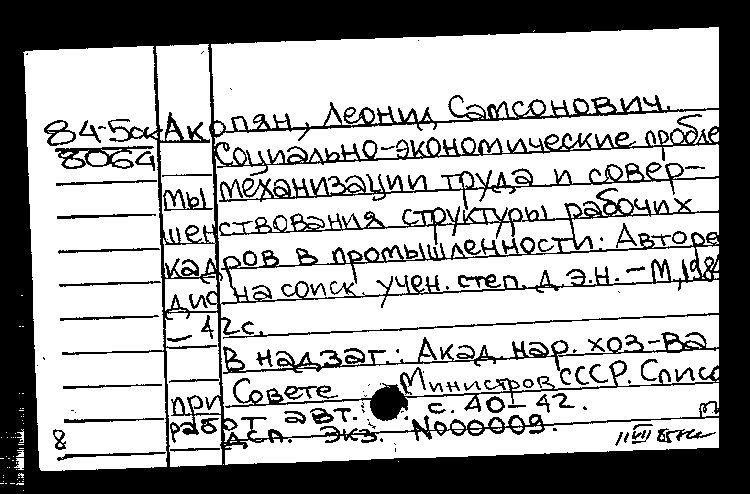 84-5ск Акопян, Леонид Самсонович.
8064 Социально-экономические пробле
мы механизации труда и совер-
шенствования структуры рабочих
кадров в промышленности: Авторе
дис на соиск. учен. степ. д.э.н. – М, 198
– 42с.
В надзаг.: Акад. нар. хоз-ва
при Совете Министров СССР. Списо
работ авт. с. 40-42.
8 ДСП. Экз. №00009.